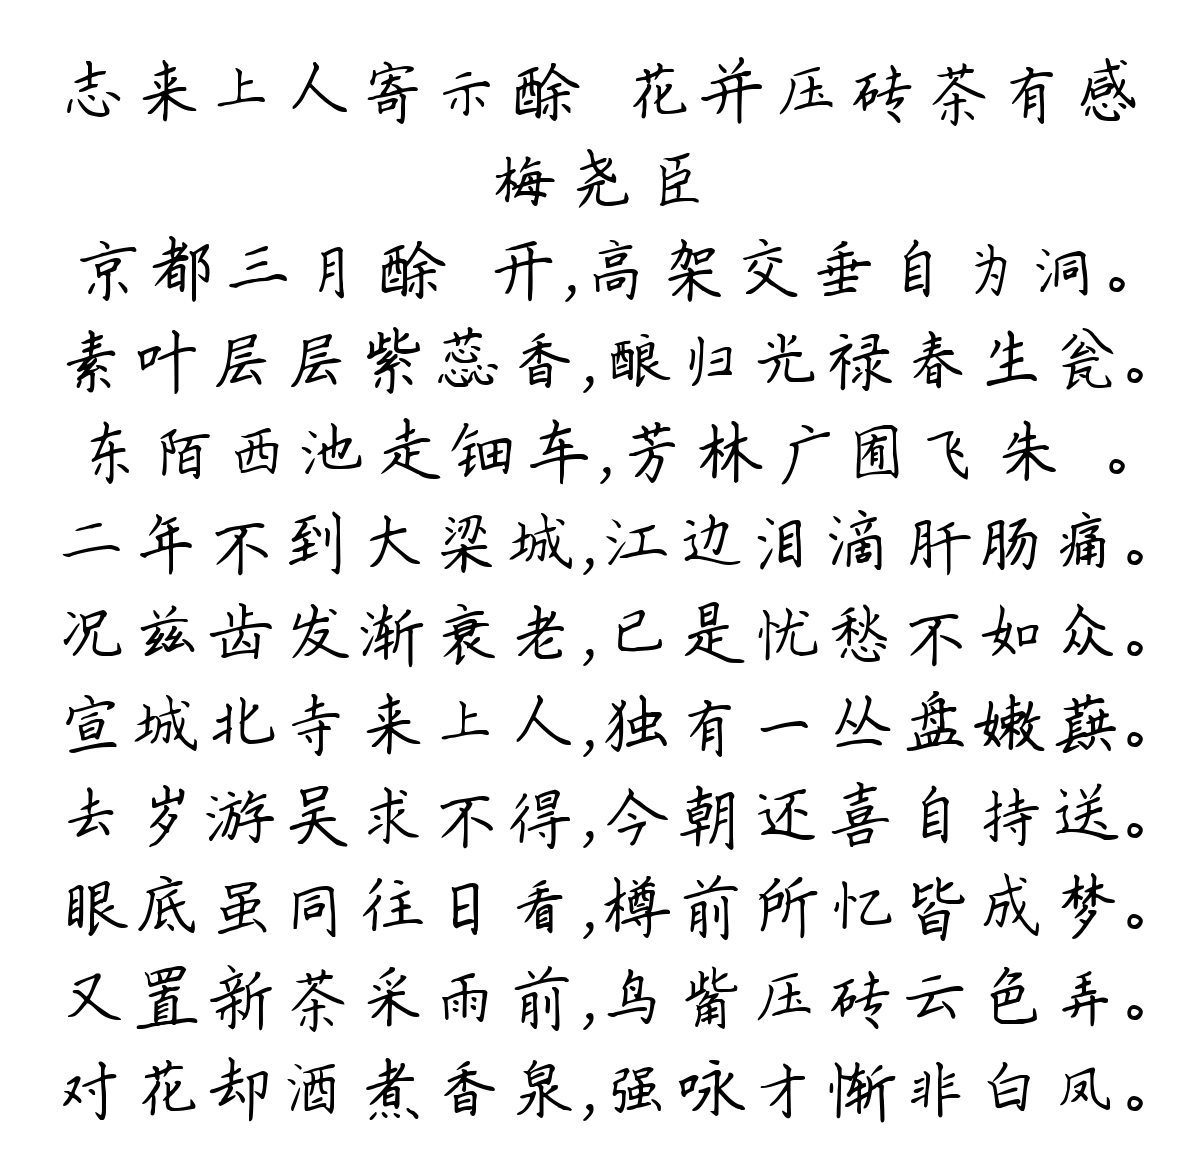 志来上人寄示酴 花并压砖茶有感
梅尧臣
京都三月酴 开,高架交垂自为洞。
素叶层层紫蕊香,酿归光禄春生瓮。
东陌西池走钿车,芳林广囿飞朱 。
二年不到大梁城,江边泪滴肝肠痛。
况兹齿发渐衰老,已是忧愁不如众。
宣城北寺来上人,独有一丛盘嫩蕻。
去岁游吴求不得,今朝还喜自持送。
眼底虽同往日看,樽前所忆皆成梦。
又置新茶采雨前,鸟觜压砖云色弄。
对花却酒煮香泉,强咏才惭非白凤。